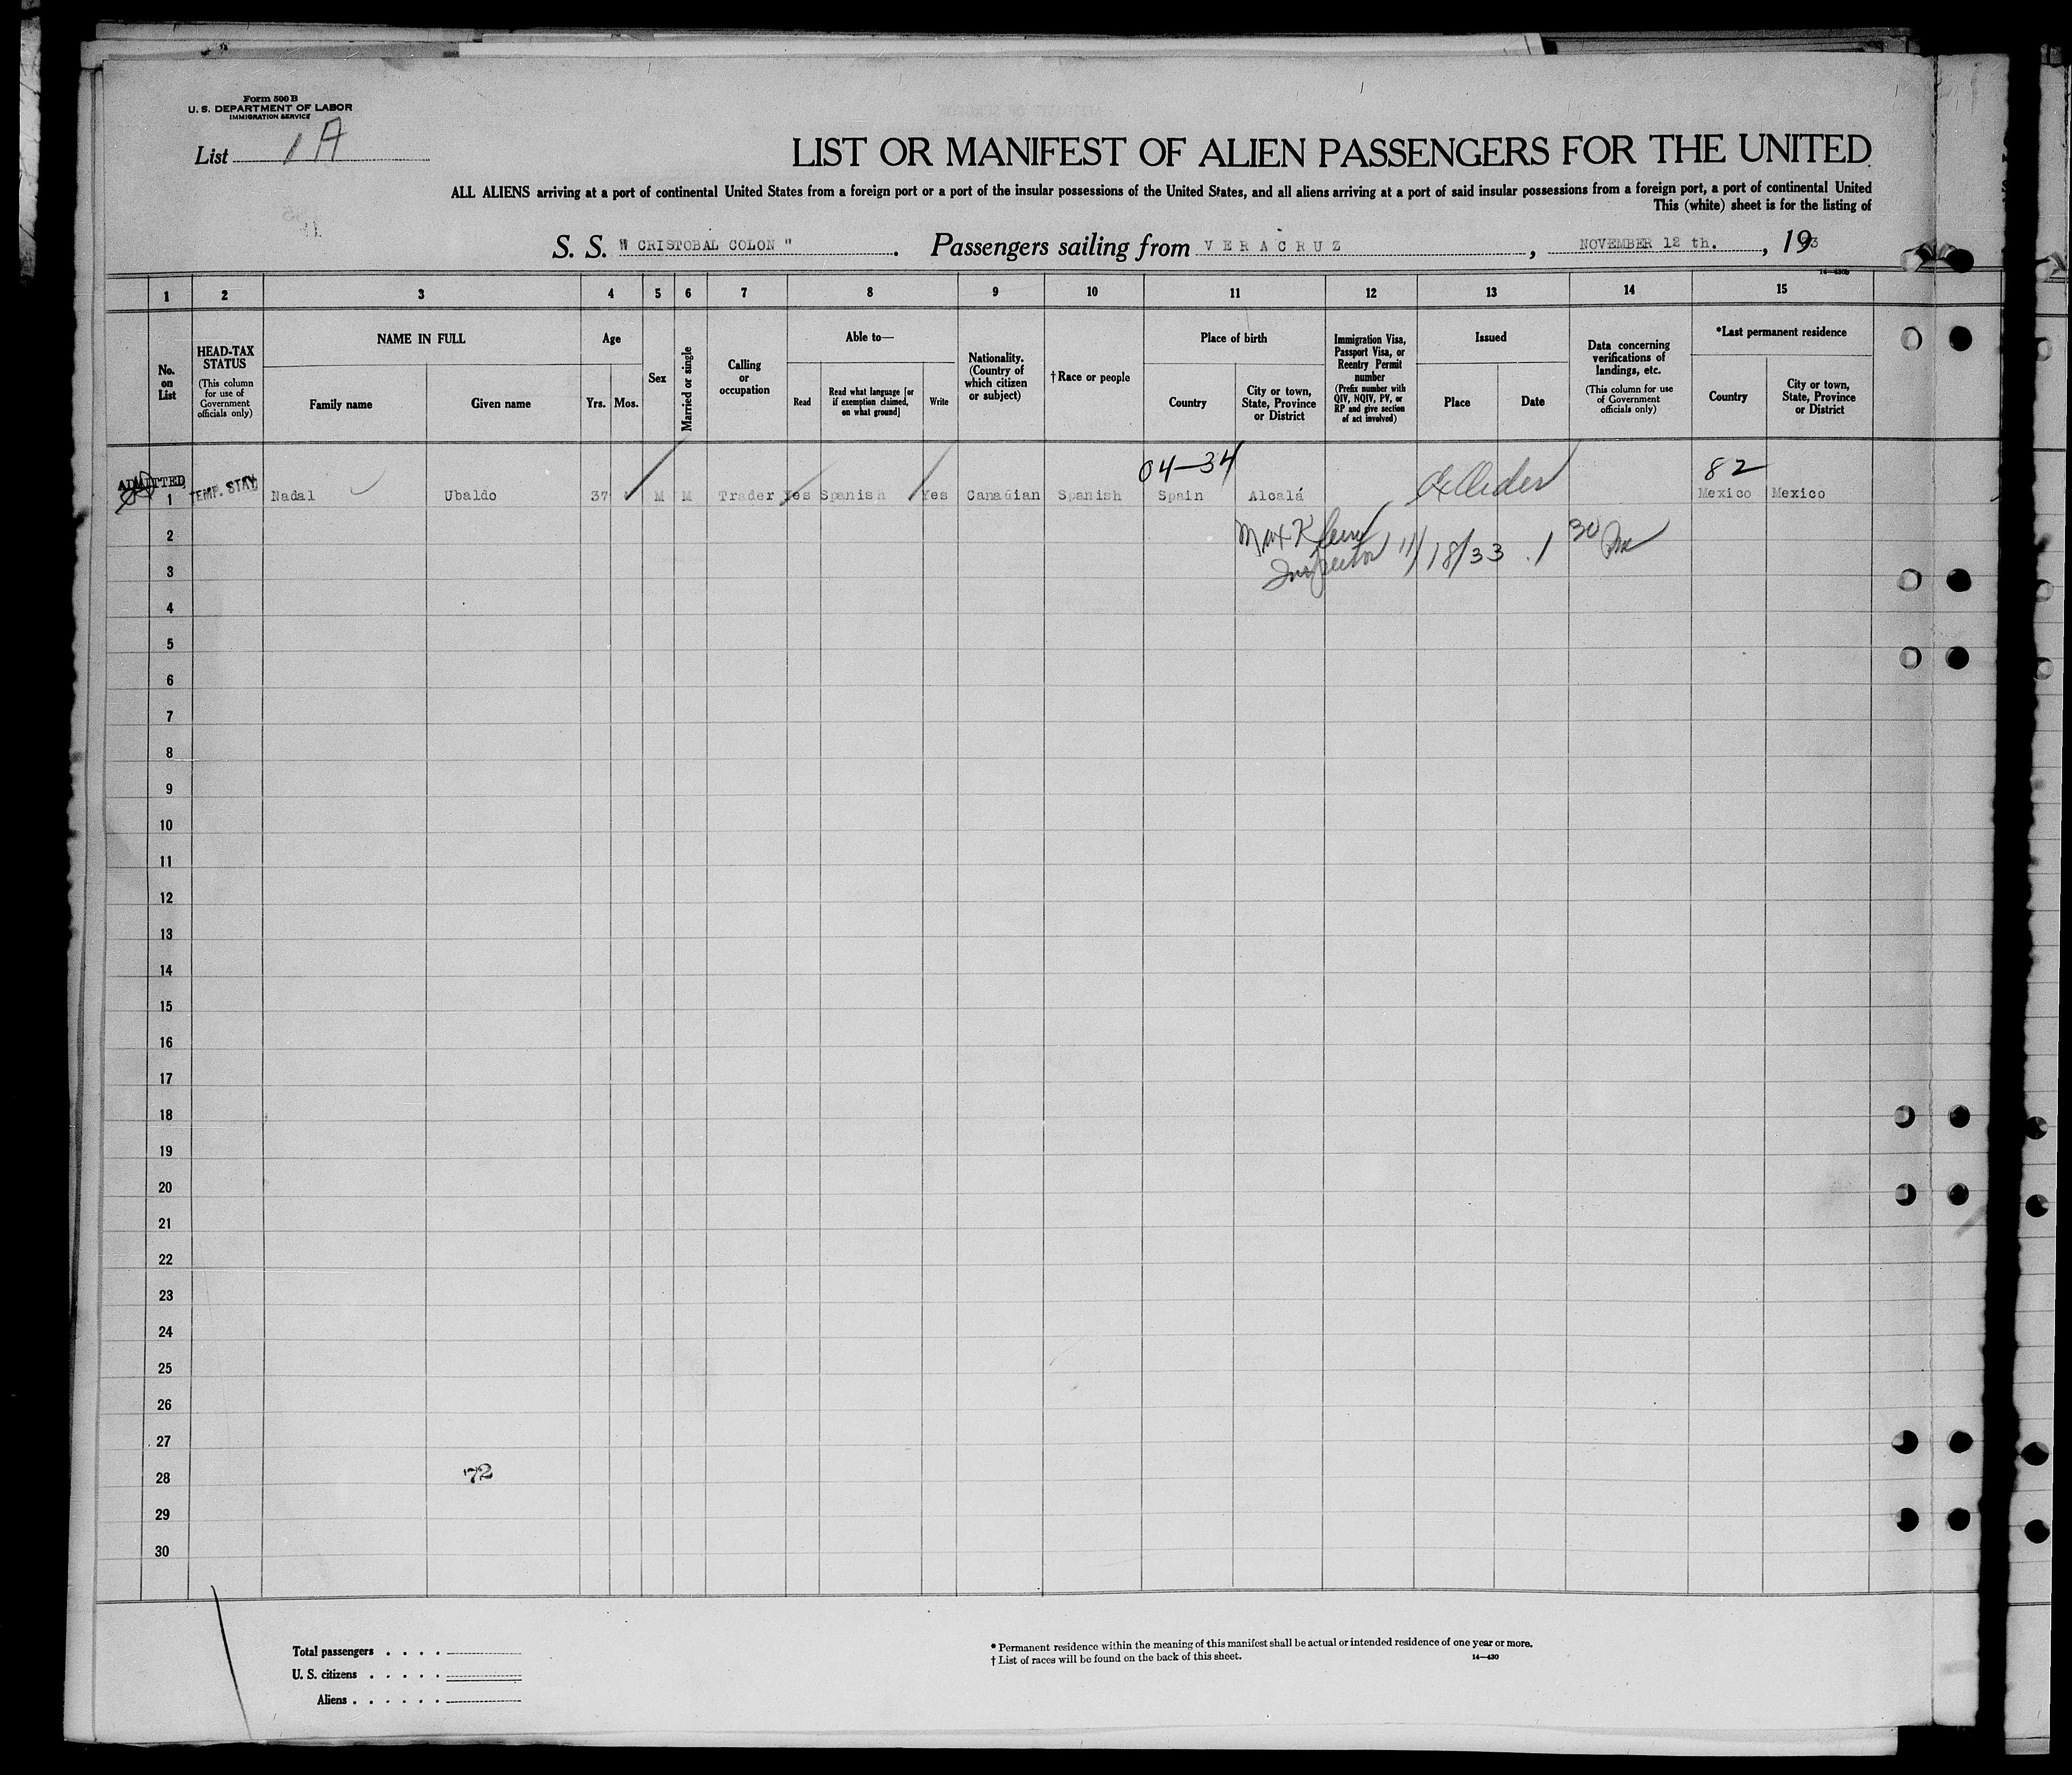 Form 500 B
U. S. DEPARTMENT OF LABOR
IMMIGRATION SERVICE
List 1 A
LIST OR MANIFEST OF ALIEN PASSENGERS FOR THE UNITED
ALL ALIENS arriving at a port of continental United States from a foreign port or a port of the insular possessions of the United States, and all aliens arriving at a port of said insular possessions from a foreign port, a port of continental United
This (white) sheet is for the listing of
S. S. " CRISTOBAL COLON ". Passengers sailing from VERACRUZ, NOVEMBER 12 th., 19
1 2 3 4 5 6 7 8 9 10 11 12 13 14 15
No. on List
HEAD-TAX STATUS
(This column for use of Government officials only)
NAME IN FULL
Family name
Given name
Age
Yrs. Mos.
Sex
Married or single
Calling or occupation
Able to—
Read
Read what language [or if exemption claimed, on what ground]
Write
Nationality. (Country of which citizen or subject)
†Race or people
Place of birth
Country
City or town, State, Province or District
Immigration Visa, Passport Visa, or Reentry Permit number
(Prefix number with QIV, NQIV, PV, or RP and give section of act involved)
Issued
Place
Date
Data concerning verifications of landings, etc.
(This column for use of Government officials only)
*Last permanent residence
Country
City or town, State, Province or District
04-34 82
ADMITTED
1 TEMP. STAY Nadal Ubaldo 37 M M Trader Yes Spanish Yes Canadian Spanish Spain Alcalá Mexico Mexico
2
Max Klein
Inspector 11/18/33 1 30 Pm
3
4
5
6
7
8
9
10
11
12
13
14
15
16
17
18
19
20
21
22
23
24
25
26
27
28 72
29
30
Total passengers . . . .
U. S. citizens . . . . .
Aliens . . . . . .
* Permanent residence within the meaning of this manifest shall be actual or intended residence of one year or more.
† List of races will be found on the back of this sheet. 14—430